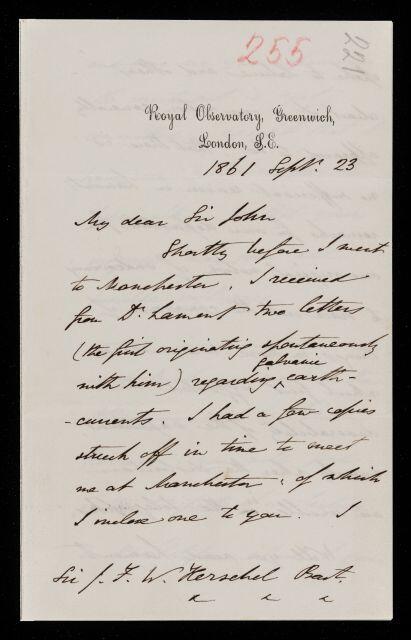 255
221
Royal Observatory, Greenwich,
London, S.E.
1861 Septr. 23
My dear Sir John
Shortly before I went
to Manchester, I received
from Dr. Lamont two letters
(the first originating spontaneously
with him) regarding galvanic earth-
-currents. I had a few copies
struck off in time to meet
me at Manchester, of which
I inclose one to you. I
Sir J. F. W. Herschel Bart.